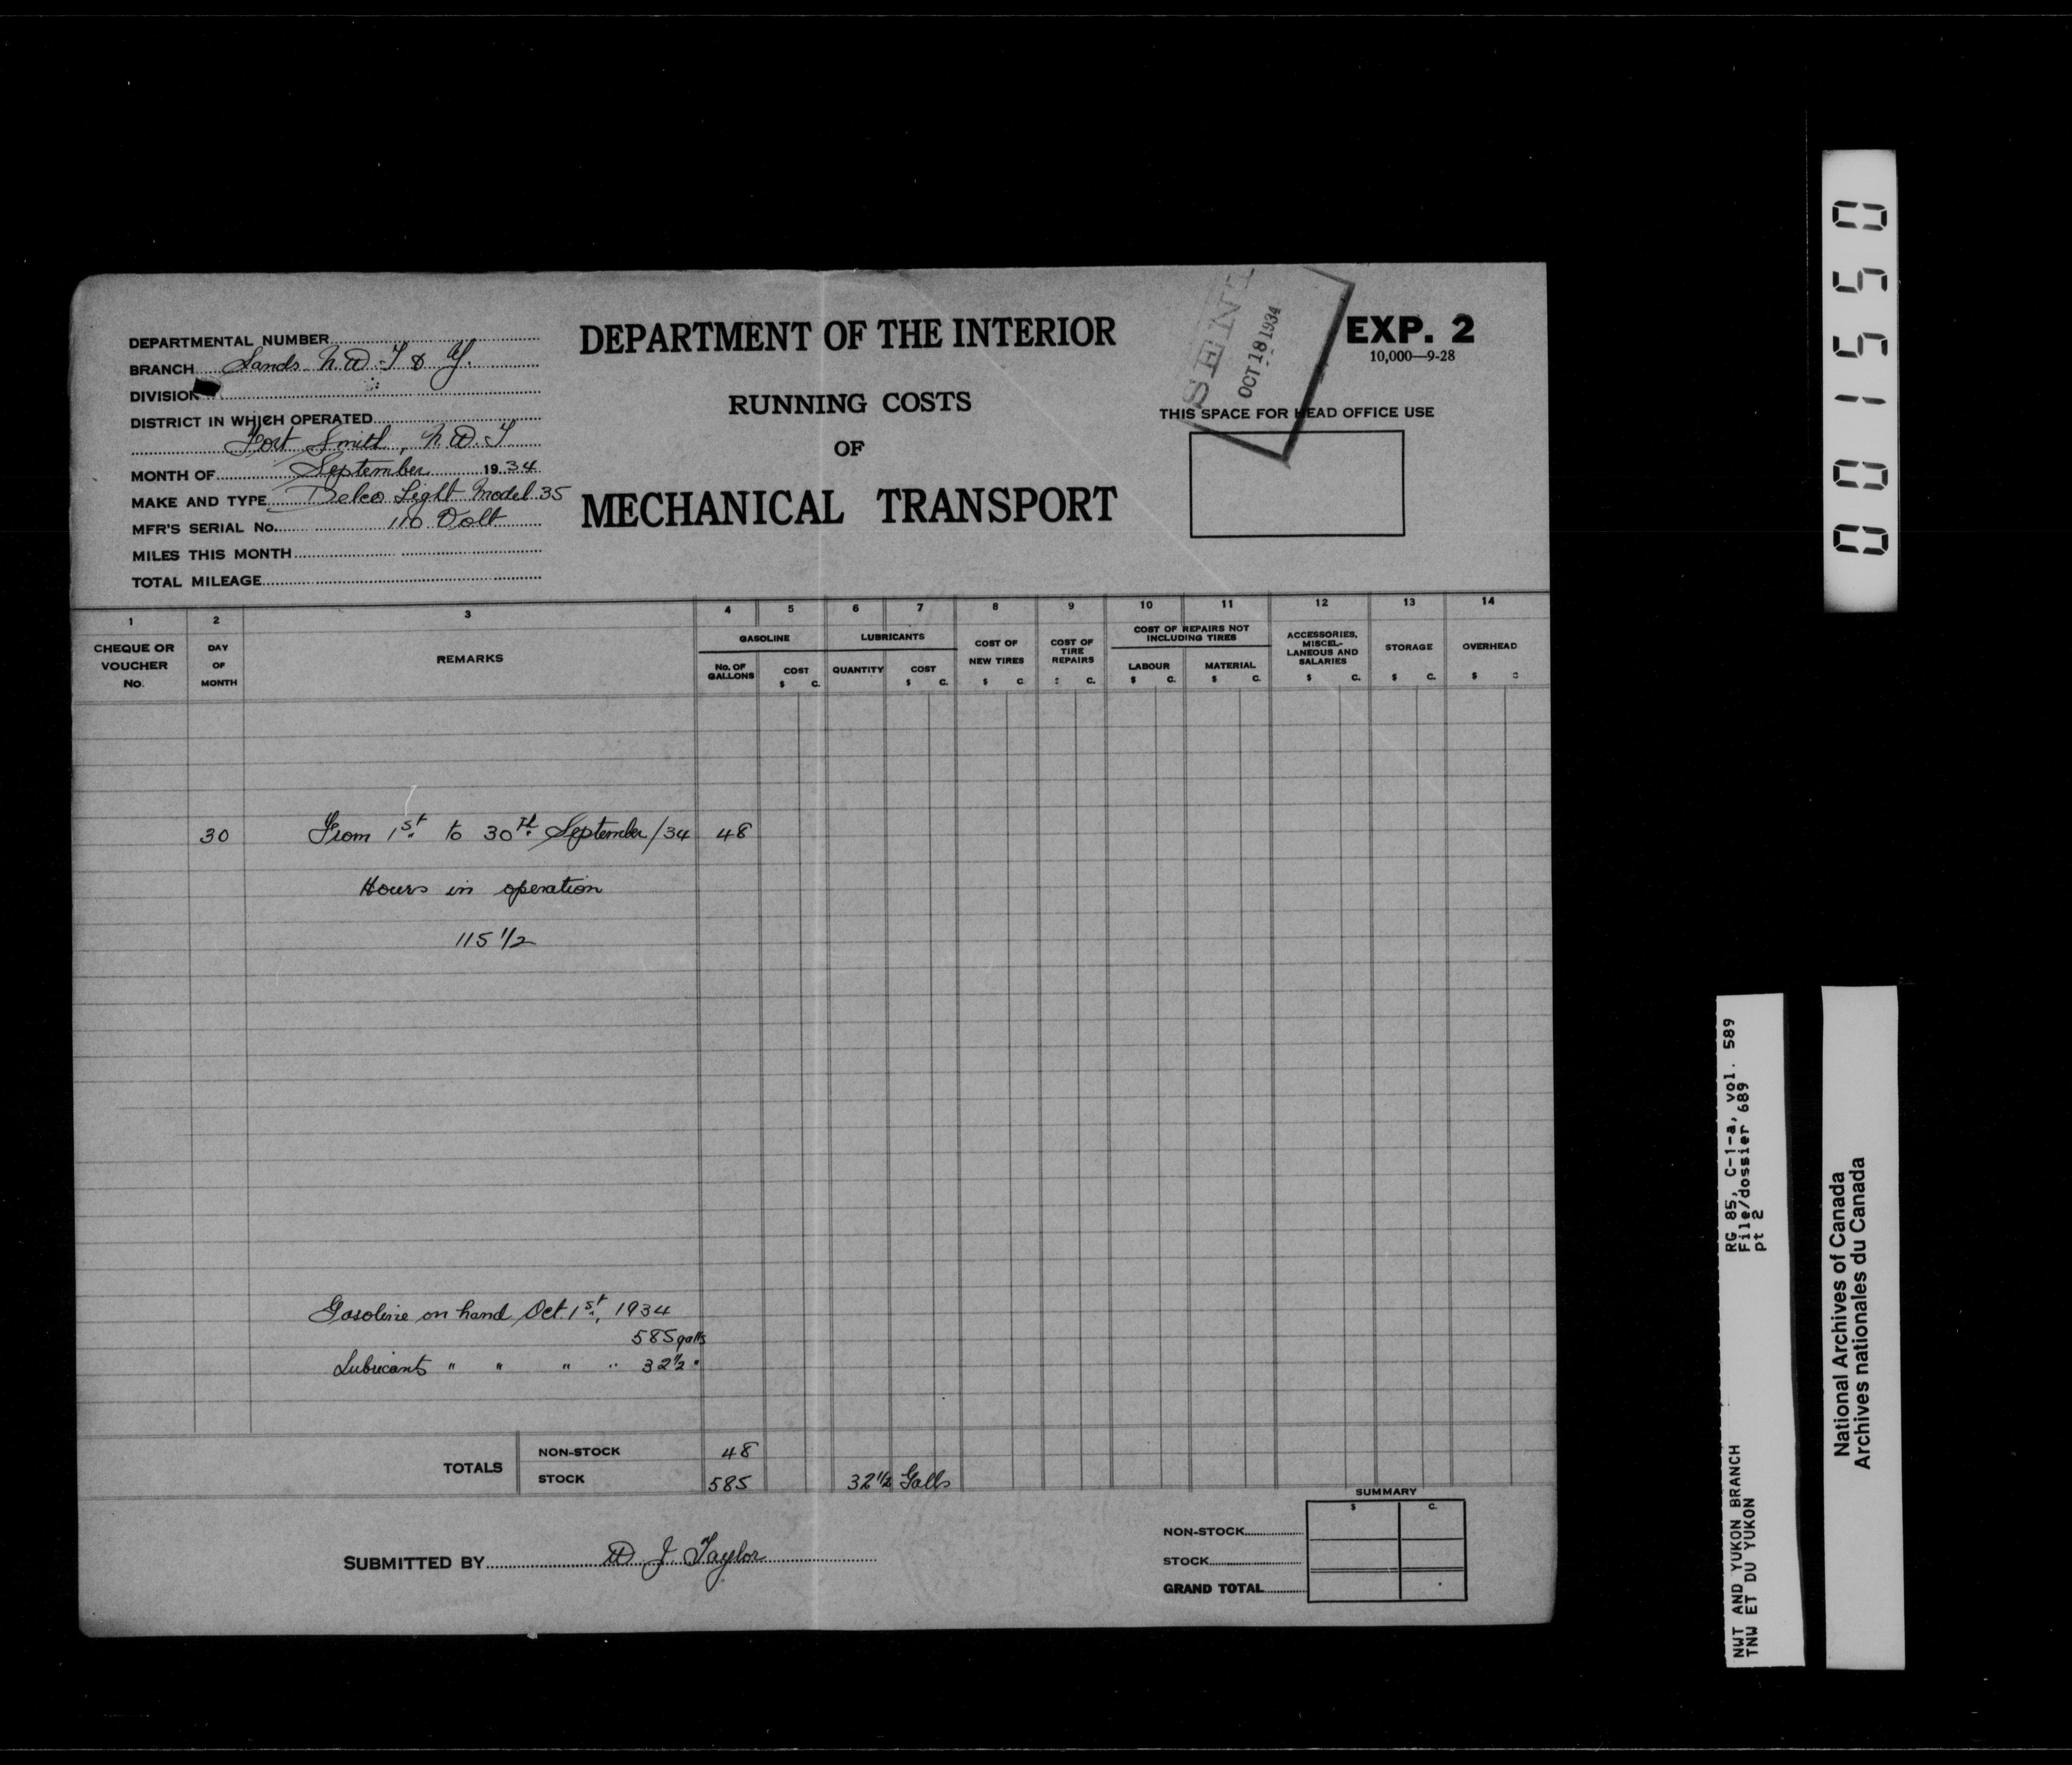 DEPARTMENTAL NUMBER
BRANCH Lands N.W.T & Y.
DIVISION
DISTRICT IN WHICH OPERATED
Fort Smith, N.W.T
MONTH OF September 1934
MAKE AND TYPE Delco Light Model 35
MFR'S SERIAL No. 110 Volt
MILES THIS MONTH
TOTAL MILEAGE
DEPARTMENT OF THE INTERIOR
RUNNING COSTS
OF
MECHANICAL TRANSPORT
SENT
OCT 18 1934
EXP. 2
10,000—9-28
THIS SPACE FOR HEAD OFFICE USE
1 2 3 4 5 6 7 8 9 10 11 12 13 14
CHEQUE OR VOUCHER No.
DAY OF MONTH
REMARKS
GASOLINE
No. OF GALLONS
COST $ C.
LUBRICANTS
QUANTITY
COST $ C.
COST OF NEW TIRES $ C
COST OF TIRE REPAIRS $ C.
COST OF REPAIRS NOT INCLUDING TIRES
LABOUR $ C.
MATERIAL $ C.
ACCESSORIES, MISCEL-LANEOUS AND SALARIES $ C.
STORAGE $ C.
OVERHEAD $ C
30 From 1st to 30th September/34 48
Hours in operation
115 1/2
Gasoline on hand Oct. 1st, 1934
585 galls
Lubricants " " " " 32 1/2 "
TOTALS
NON-STOCK 48
STOCK 585 32 1/2 Galls
SUBMITTED BY W J. Taylor
SUMMARY
$ C.
NON-STOCK
STOCK
GRAND TOTAL
001550
RG 85, C-1-a, vol. 589
File/dossier 689
pt 2
NWT AND YUKON BRANCH
TNW ET DU YUKON
National Archives of Canada
Archives nationales du Canada